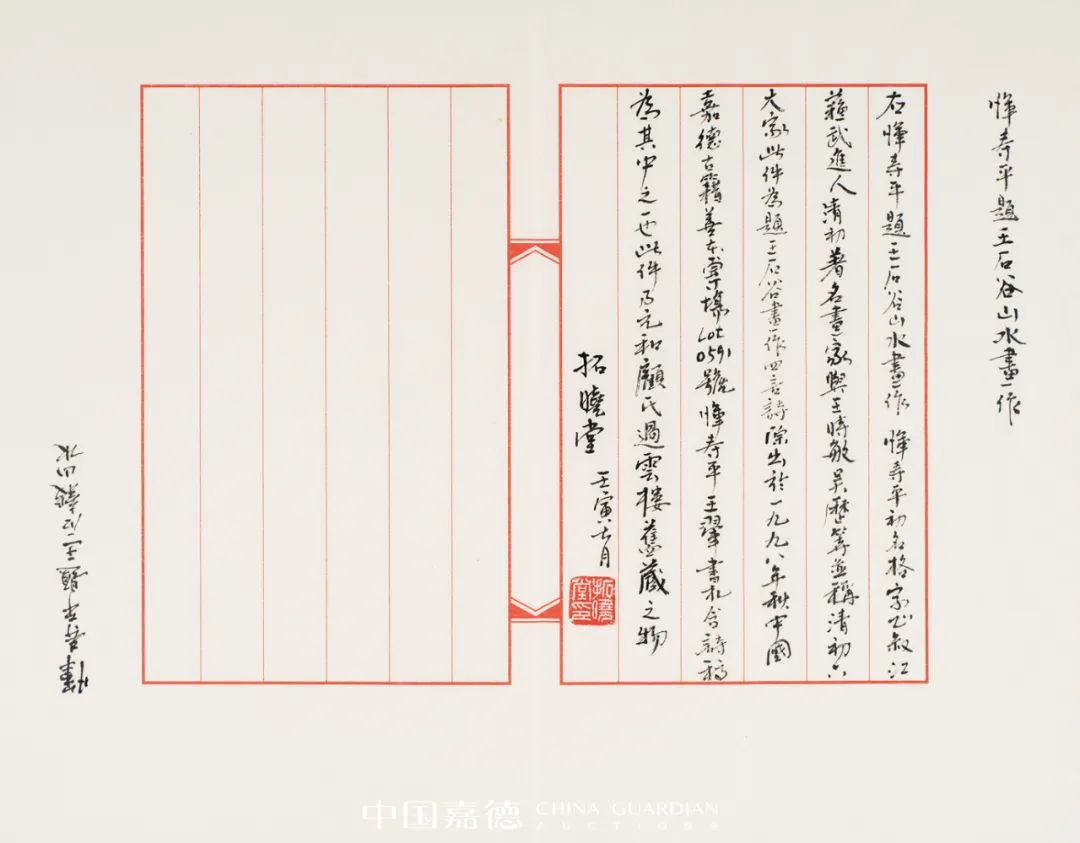 惲壽平題王石谷山水畫一作
右惲壽平題王石谷山水畫作 惲壽平初名格字正叔江
蘇武進人清初著名畫家與王時敏吳歷等並稱清初六
大家此件為題王石谷畫作四言詩 原出於一九九八年秋中國
嘉德古籍善本專場Lot 0591號惲壽平王翬書札合詩稿
為其中之一也此件乃元和顧氏過雲樓舊藏之物
拓曉堂 壬寅六月
拓曉堂印
惲壽平題王石穀山水
中国嘉德 CHINA GUARDIAN AUCTIONS